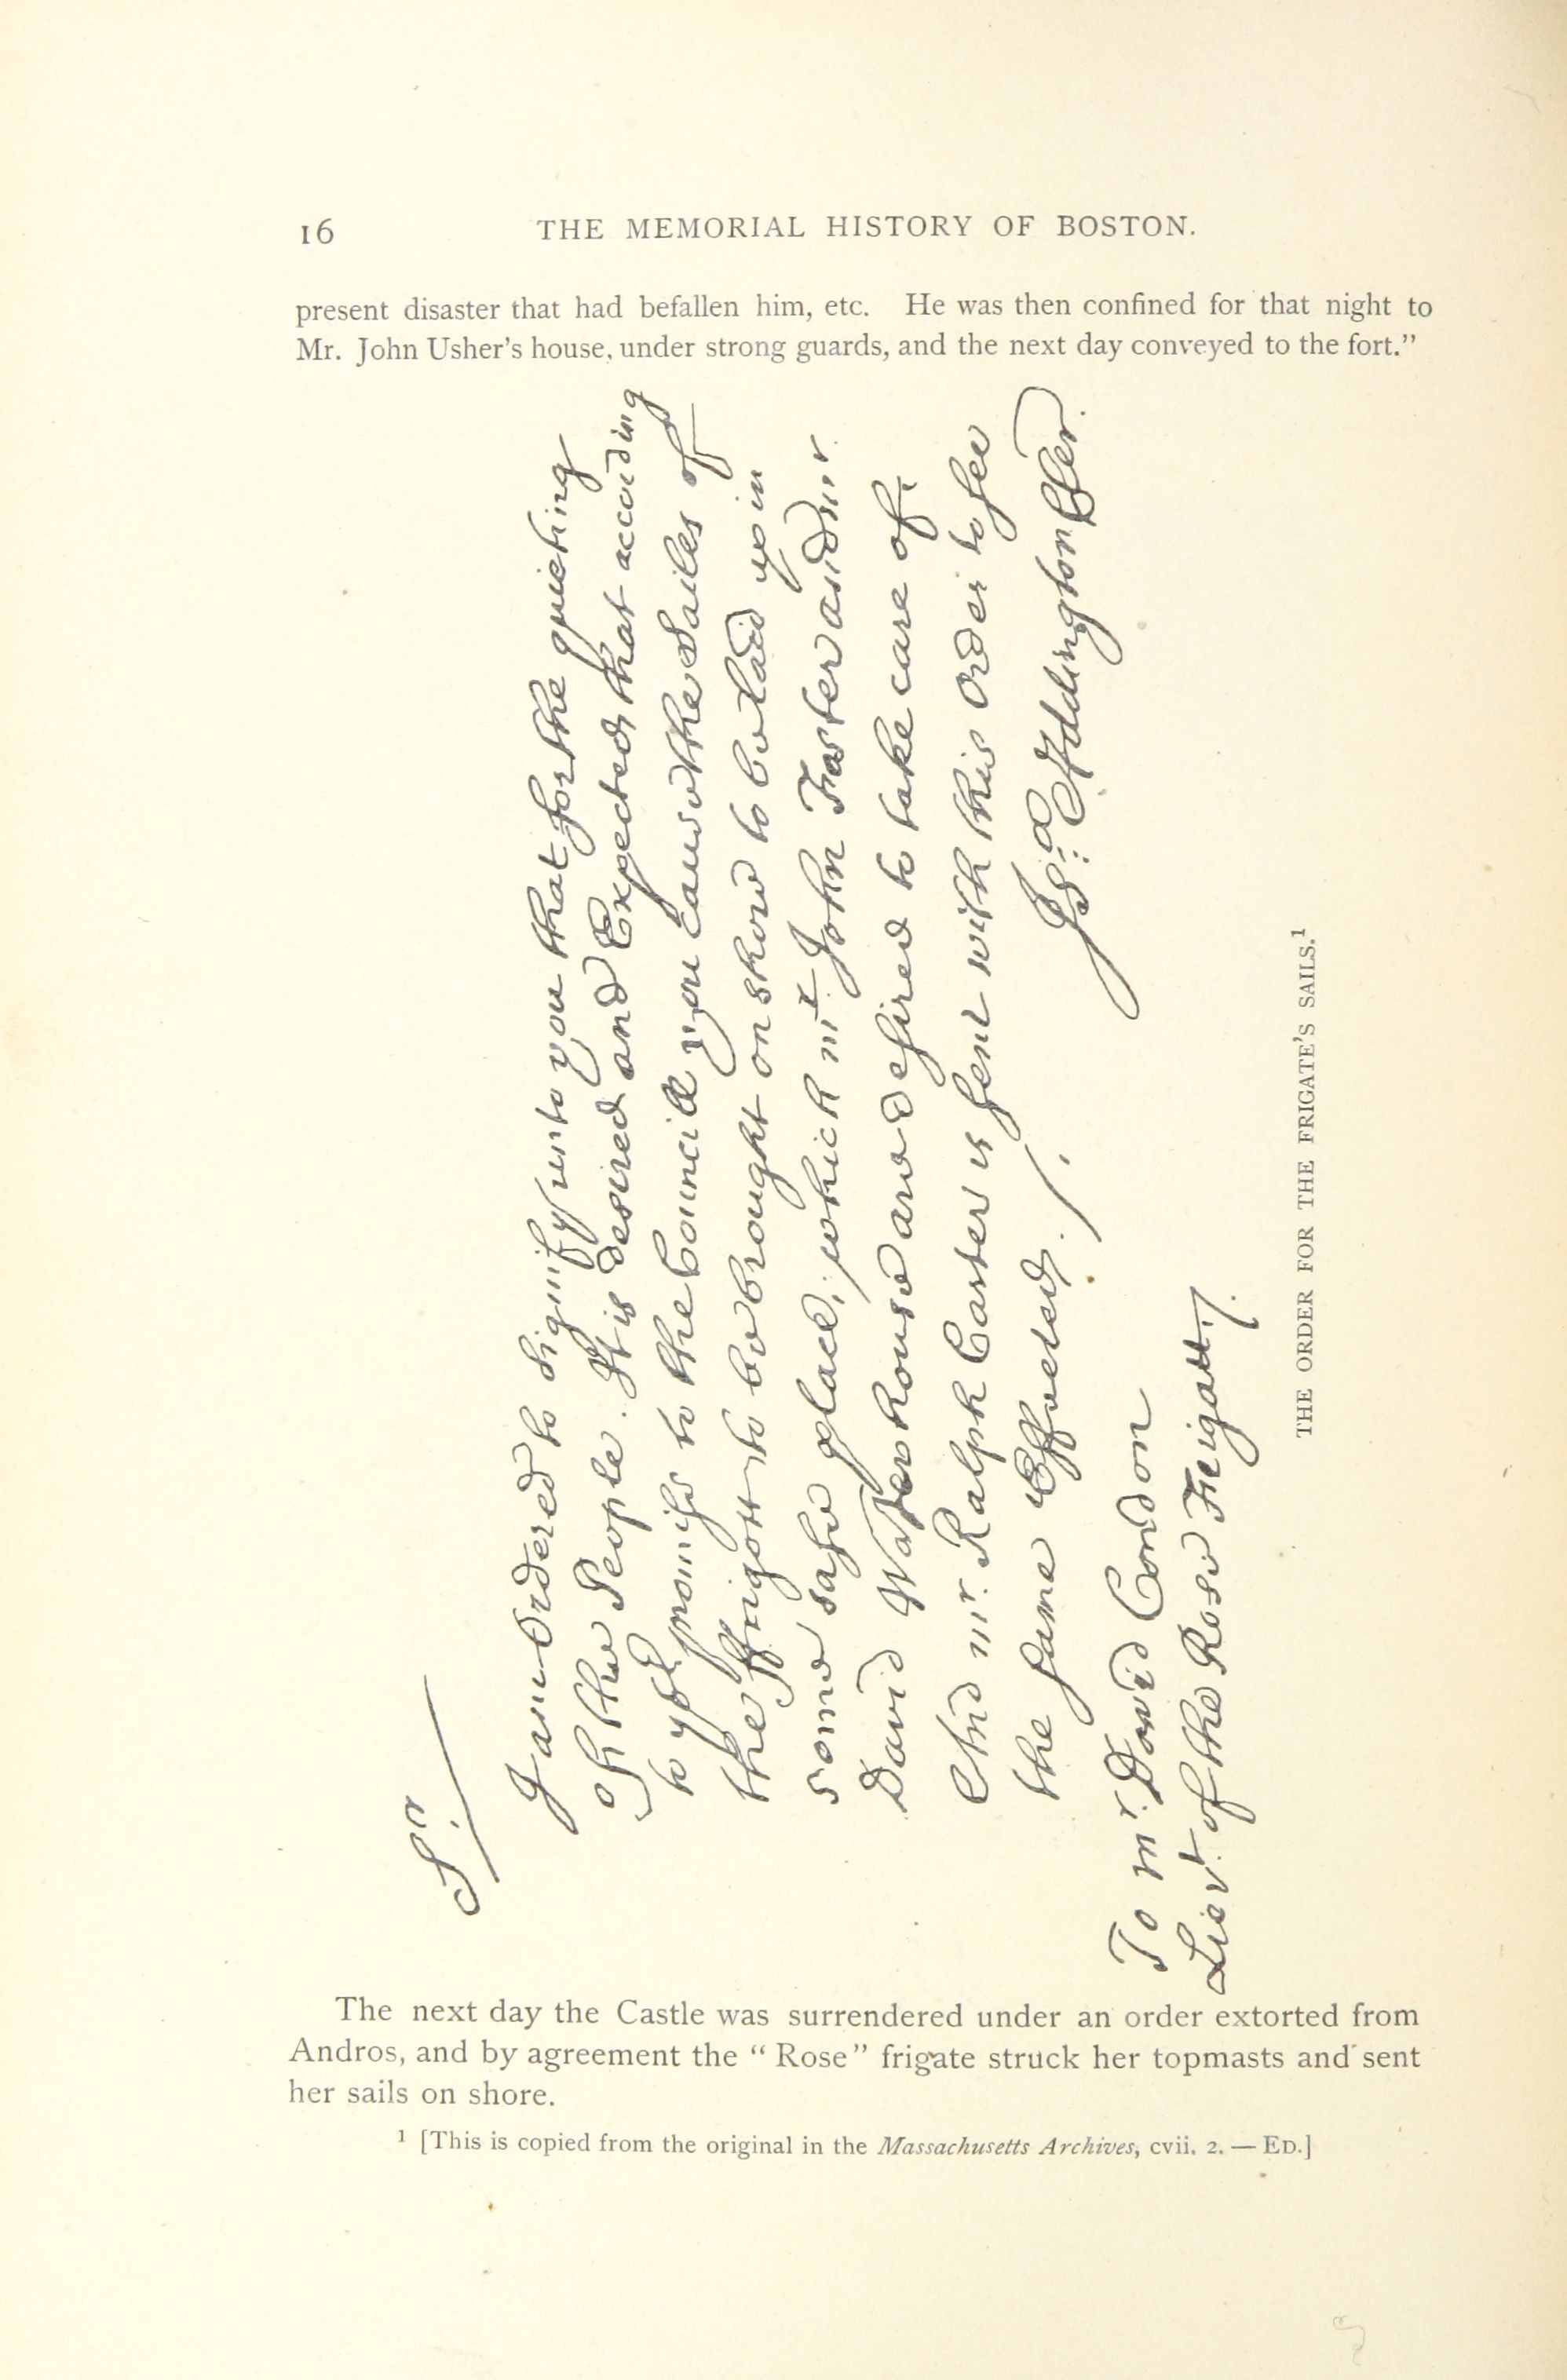 16 THE MEMORIAL HISTORY OF BOSTON.
present disaster that had befallen him, etc. He was then confined for that night to
Mr. John Usher's house, under strong guards, and the next day conveyed to the fort."
Sr.
I am Ordered to signify unto you that for the quieting
Of the People. It is desired and Expected, that according
to yor. promise to the Councill you cause the Sailes of
the ffrigott to be brought on shore to be laid up in
some safe place, which mr. John Foster and mr.
David Waterhouse are desired to take care of,
And mr. Ralph Carter is sent with this Order to see
the same Effected.
Isa: Addington Cler.
To mr. David Condon
Lievt. of the Rose Frigatt.
THE ORDER FOR THE FRIGATE'S SAILS.¹
The next day the Castle was surrendered under an order extorted from
Andros, and by agreement the "Rose" frigate struck her topmasts and sent
her sails on shore.
¹ [This is copied from the original in the Massachusetts Archives, cvii. 2. — ED.]